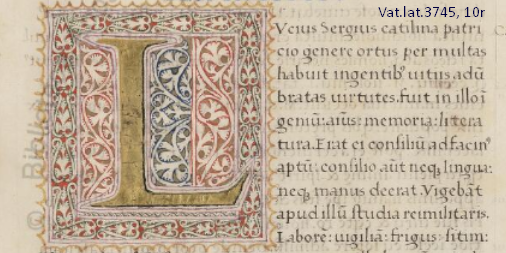 Vat.lat.3745, 10r
LVcius Sergius catilina patri
cio genere ortus per multas
habuit ingentib᾽ uitijs adū
bratas uirtutes. fuit in illo ī
geniū: aīus: memoria: litera
tura. Erat ei consiliū ad facin᾽
aptū: consilio aūt neq; lingua:
neq; manus deerat. Vigebāt
apud illū studia rei militaris.
Labore: uigilia: frigus: sitim:
© Bibli